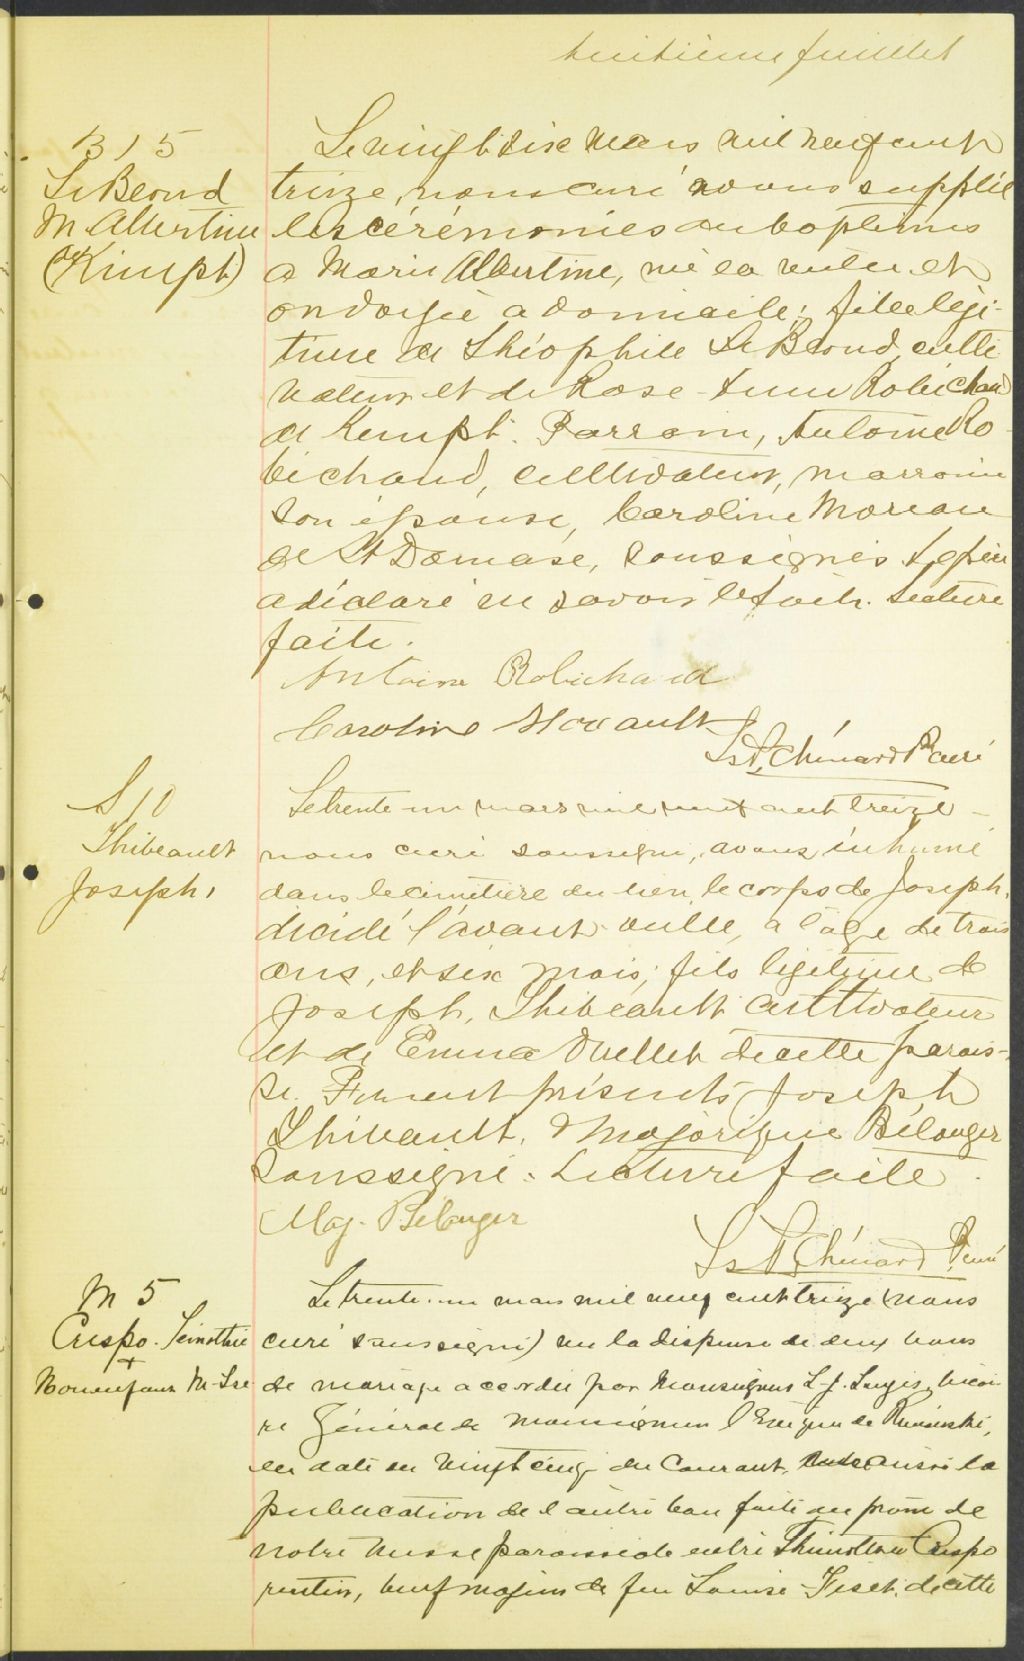 huitième feuillet
B 15
LeBlond
M. Albertine
(Kempt)
Le vingt six mars mil neuf cent
treize, nous curé avons supplée
les cérémonies du baptêmes
a Marie Albertine, née la veille et
ondoyée a domicile; fille légi-
time de Théophile LeBlond, culti
vateur et de Rose-Anna Robichaud
de Kempt. Parrain, Antoine Ro-
bichaud, cultivateur, marraine
son épouse, Caroline Moreau
de St Damase, soussignés. Le père
a déclaré ne savoir le faire. Lecture
faite.
Antoine Robichaud
Caroline Morault
Ls P. Chénard Ptre curé
S 10
Thibeault
Joseph,
Le trente-un mars mil neuf cent treize
nous curé soussigné, avons inhumé
dans le cimetière du lieu, le corps de Joseph,
décédé l'avant-veille, a l'age de trois
ans, et six mois; fils légitime de
Joseph, Thibeault cultivateur
et de Emma Ouellet de cette parois-
se. Furent présents Joseph
Thibeault, Majorique Bélanger
soussigné. Lecture faite.
Maj. Bélanger
Ls P. Chénard Ptre curé
M 5
Crespo. Timothée
+
M-Lse
Le trente-un mars mil neuf cent treize (nous
curé soussigné) vu la dispense de deux bans
de mariage accordée par Monseigneur L-J. Langis, vicai-
re Général de Monseigneur l'Evêque de Rimouski,
en date du vingt cinq du courant, vu aussi la
publication de l'autre ban faite au prône de
notre messe paroissiale entre Thimothée Crespo
rentier, veuf majeur de feu Louise Fiset, de cette